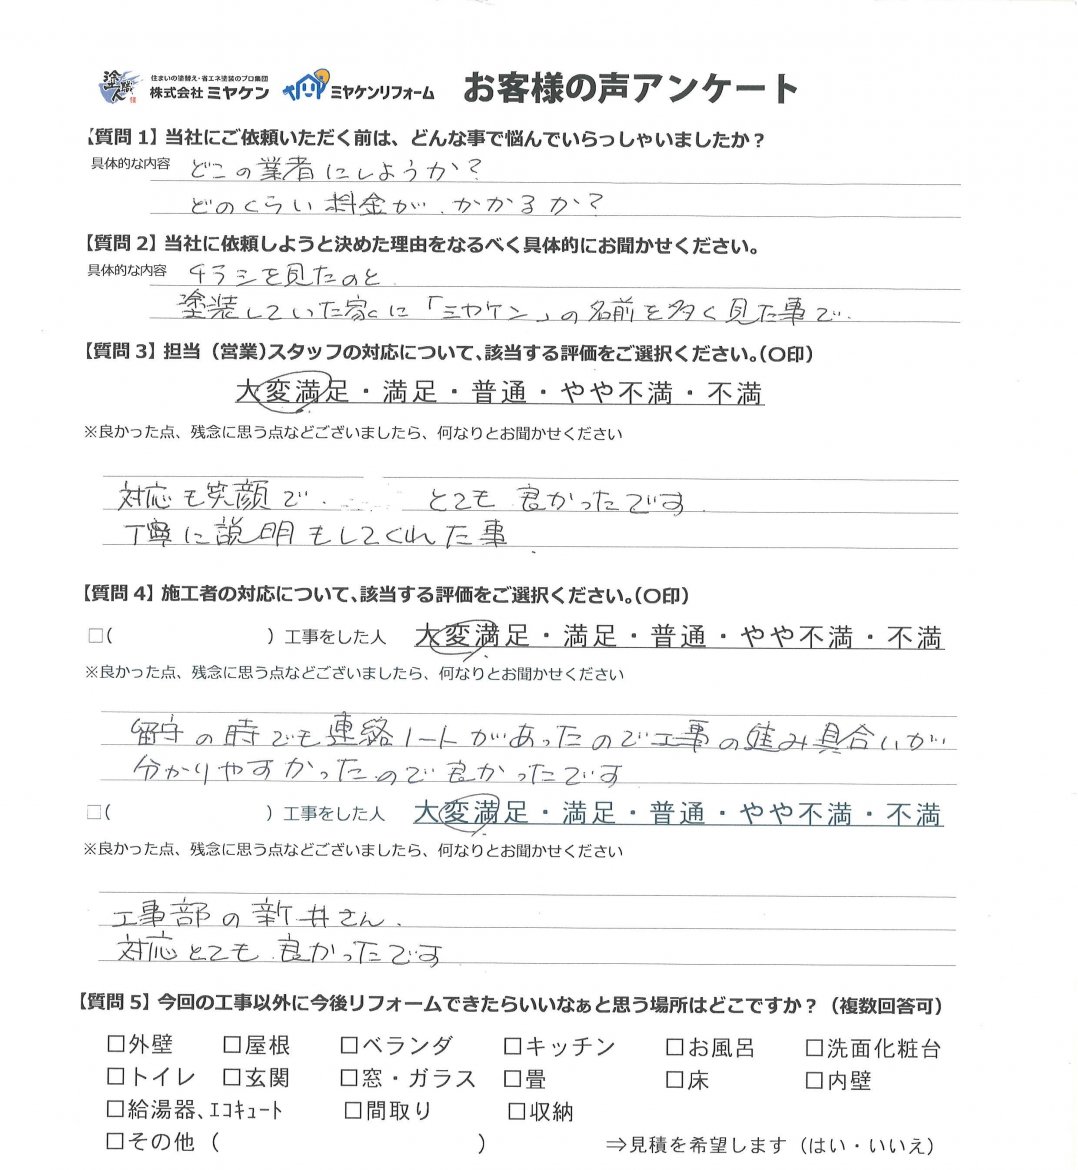 塗職人
住まいの塗替え・省エネ塗装のプロ集団
株式会社 ミヤケン
ミヤケンリフォーム
お客様の声アンケート
【質問 1】当社にご依頼いただく前は、どんな事で悩んでいらっしゃいましたか？
具体的な内容 どこの業者にしようか？
どのくらい料金が、かかるか？
【質問 2】当社に依頼しようと決めた理由をなるべく具体的にお聞かせください。
具体的な内容 チラシを見たのと、
塗装していた家々に「ミヤケン」の名前を多く見た事で、
【質問 3】担当（営業）スタッフの対応について、該当する評価をご選択ください。（○印）
大変満足・満足・普通・やや不満・不満
※良かった点、残念に思う点などございましたら、何なりとお聞かせください
対応も笑顔で、 とても良かったです
丁寧に説明もしてくれた事
【質問 4】施工者の対応について、該当する評価をご選択ください。（○印）
□（ ）工事をした人 大変満足・満足・普通・やや不満・不満
※良かった点、残念に思う点などございましたら、何なりとお聞かせください
留守の時でも連絡ノートがあったので工事の進み具合いが
分かりやすかったので良かったです
□（ ）工事をした人 大変満足・満足・普通・やや不満・不満
※良かった点、残念に思う点などございましたら、何なりとお聞かせください
工事部の新井さん、
対応とても良かったです
【質問 5】今回の工事以外に今後リフォームできたらいいなぁと思う場所はどこですか？（複数回答可）
□外壁 □屋根 □ベランダ □キッチン □お風呂 □洗面化粧台
□トイレ □玄関 □窓・ガラス □畳 □床 □内壁
□給湯器、ｴｺｷｭｰﾄ □間取り □収納
□その他（ ） ⇒見積を希望します（はい・いいえ）